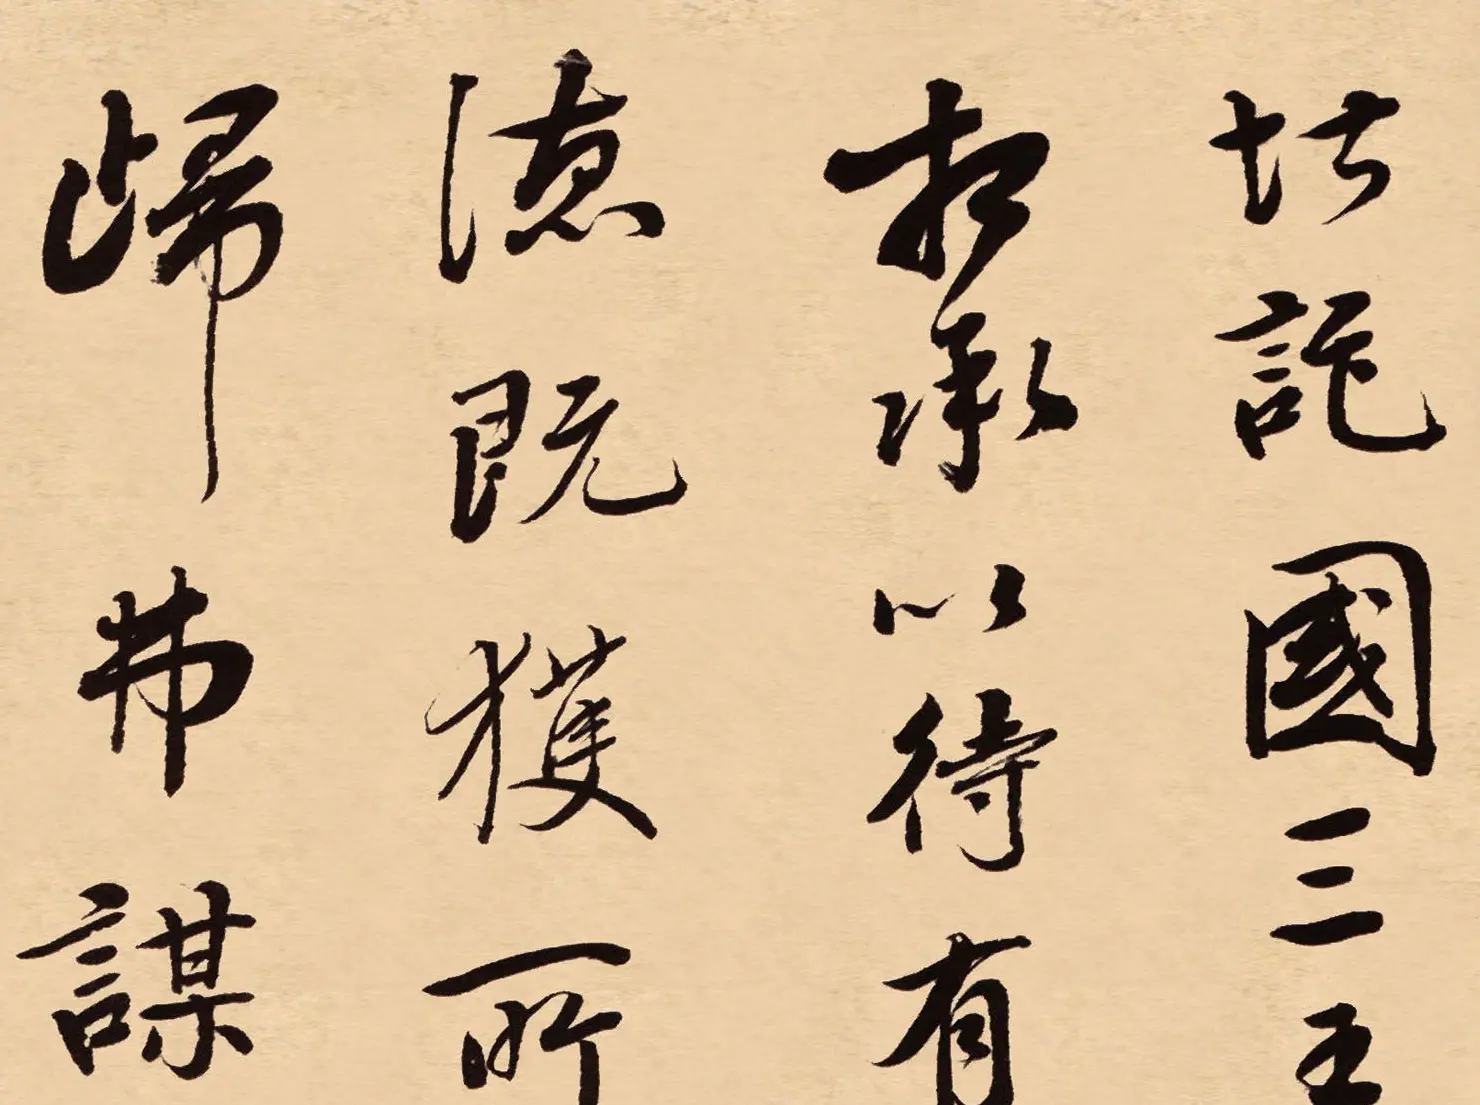 堪託國三王
相承以待有
德既獲所
歸弗謀